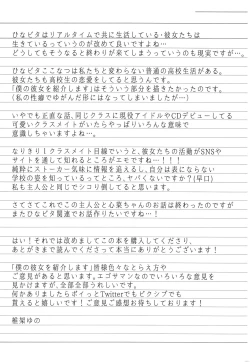 ひなビタはリアルタイムで共に生活している・彼女たちは
生きているっていうのが改めて良いですよね…
どうしてもそうなると終わりが来てしまうっていうのも現実ですが…。
ひなビタここなつは私たちと変わらない普通の高校生活がある。
彼女たちも高校生の恋愛をしてると思うんです。
「僕の彼女を紹介します」はそういう部分を描きたかったのです。
(私の性癖でゆがんだ形にはなってしまいましたが…)
いやでも正直な話、同じクラスに現役アイドルやCDデビューしてる
可愛いクラスメイトがいたらやっぱりいろんな意味で
意識しちゃいますよね…。
なりきり！クラスメイト目線でいうと、彼女たちの活動がSNSや
サイトを通して知れるところがエモですね…！！！
純粋にストーカー気味に情報を追えるし、自分は表にならない
学校の姿を知っているってところ、ヤバくないですか？(早口)
私も主人公と同じでシコり倒してると思います。
さてさてこれでこの主人公と心菜ちゃんのお話は終わったのですが
またひなビタ関連でお話作りたいですね…！
はい！それでは改めましてこの本を購入してくださり、
あとがきまで読んでくださって本当にありがとうございます！
「僕の彼女を紹介します」皆様色々なとらえ方や
ご意見があると思います。エゴサマンなのでいろいろな意見を
見かけますが、全部全部うれしいです。
何かありましたらポイっとTwitterでもピクシブでも
貰えると嬉しいです！ご意見ご感想お待ちしております！
椎架ゆの